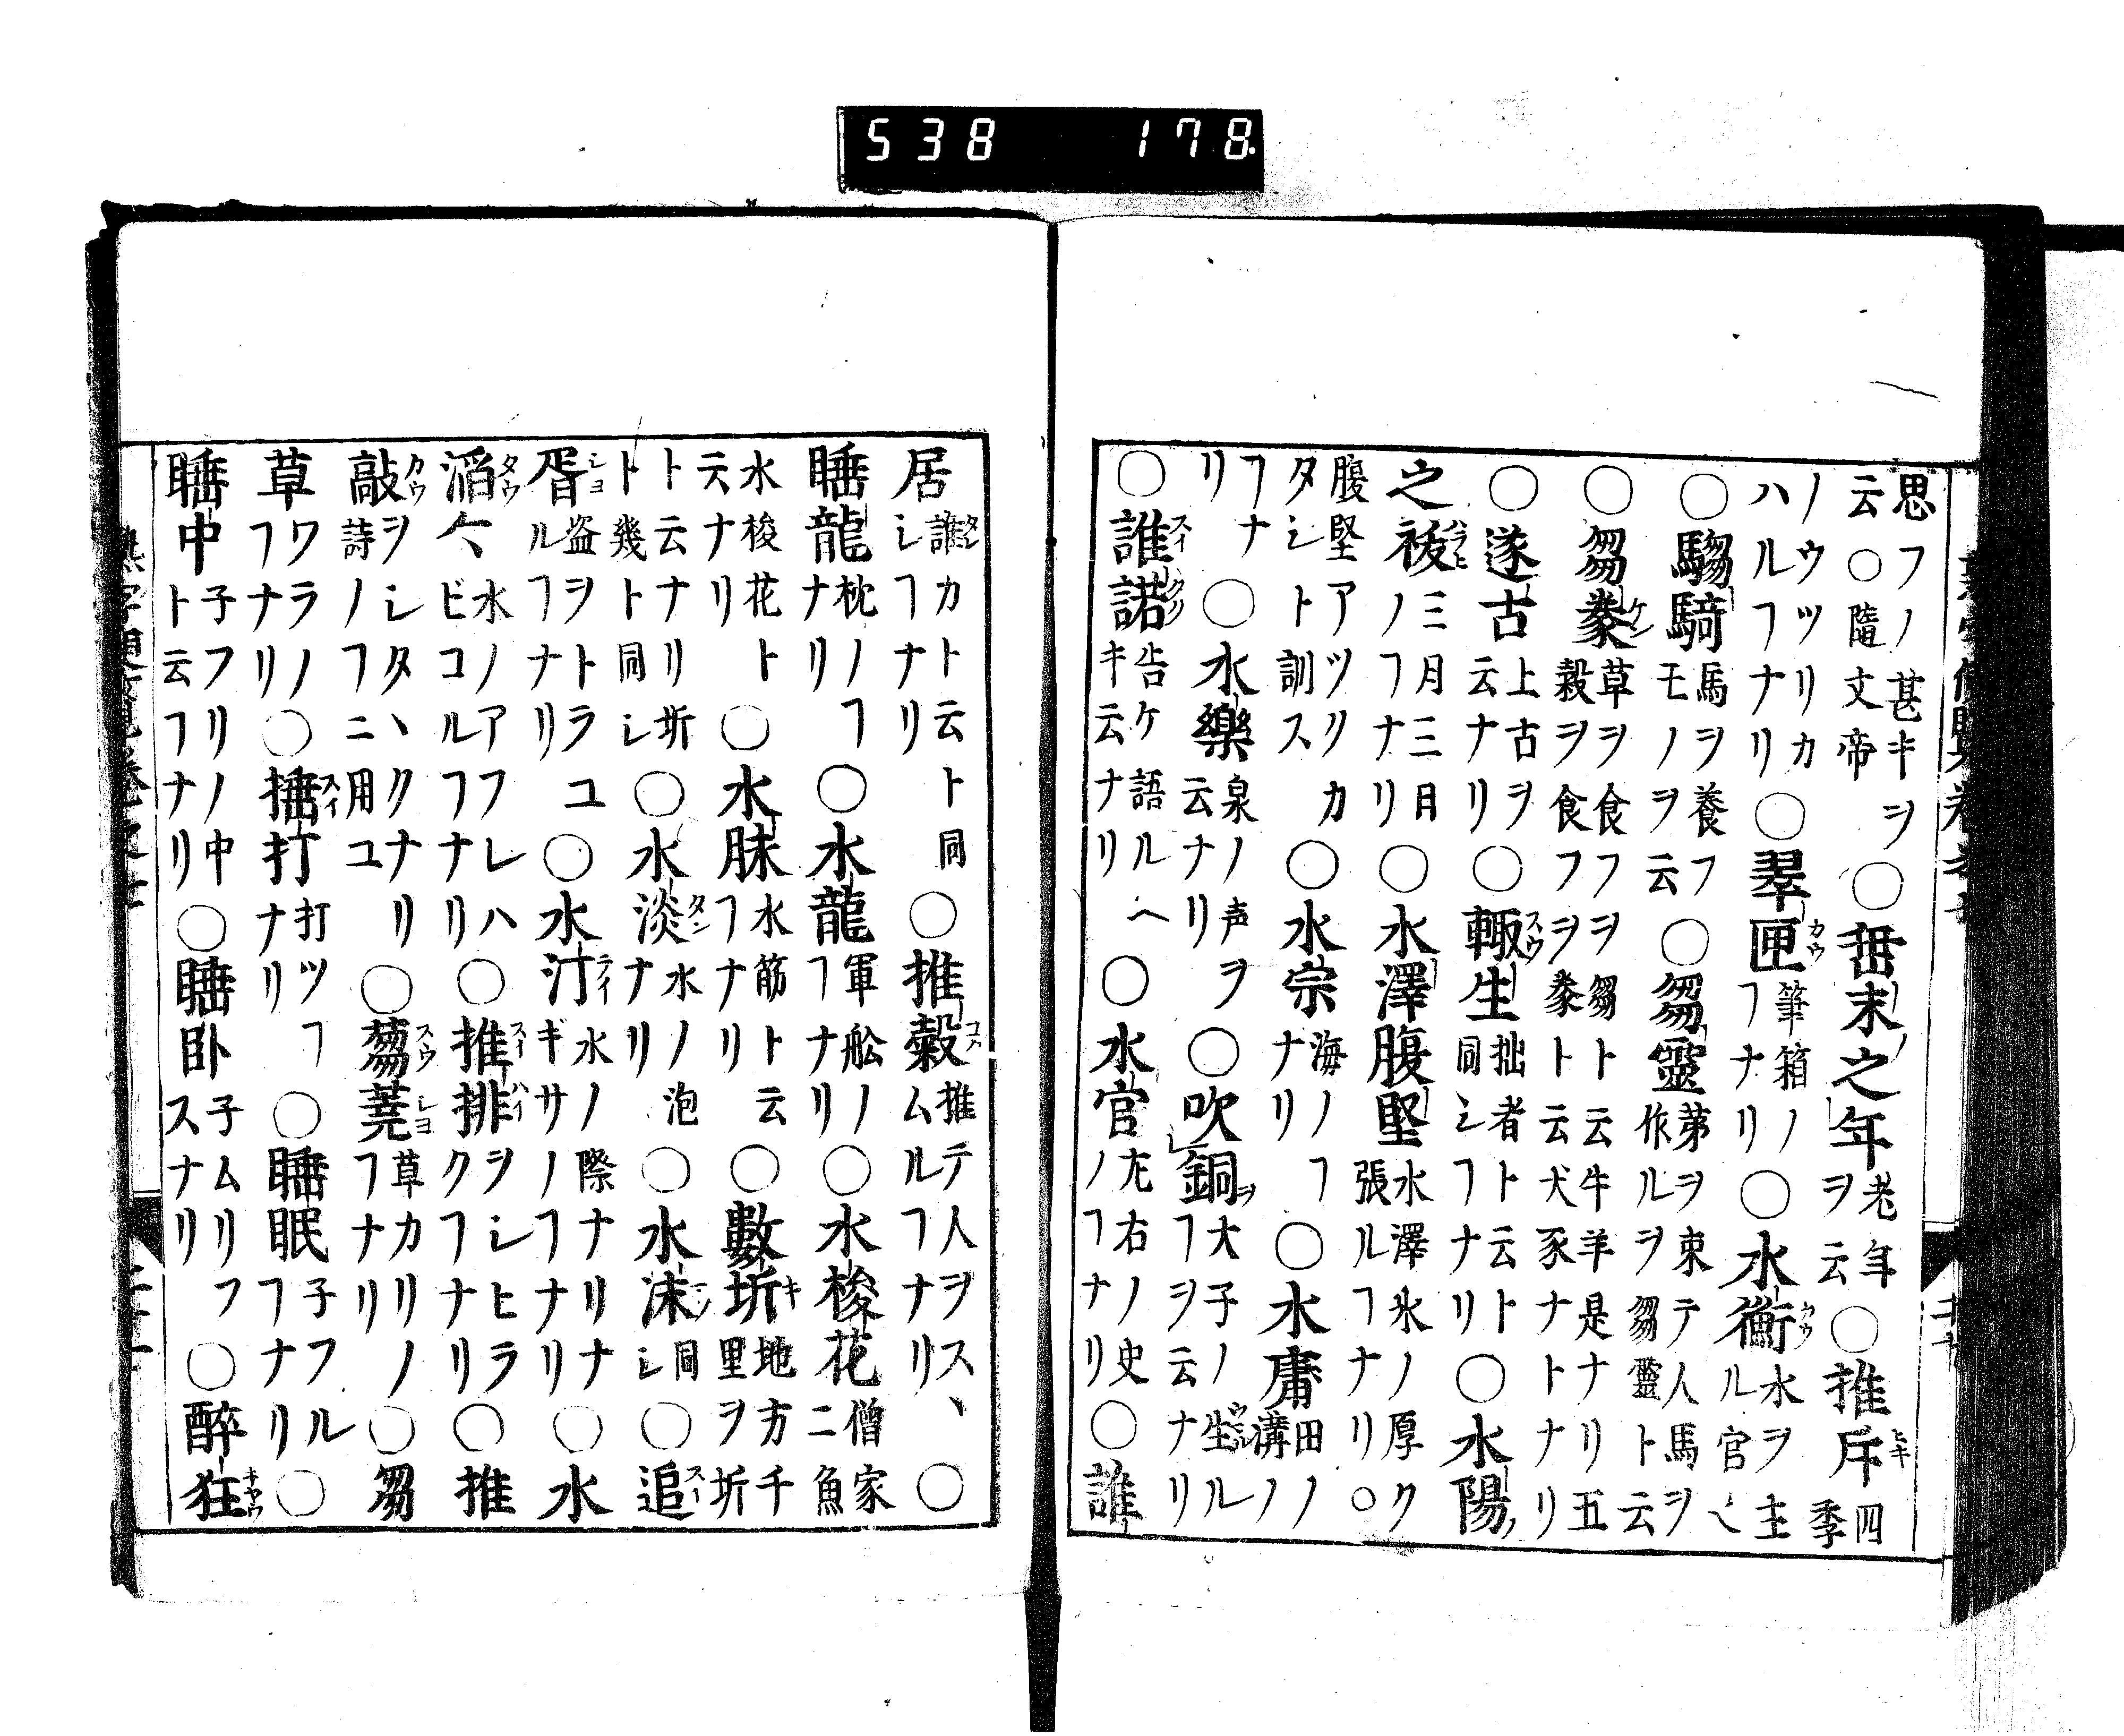 538 178.
思フノ甚キヲ云○隨文帝○垂末之年老年ヲ云○推斥四季
ノウツリカハルフナリ○翠匣筆箱ノフナリ○水衡水ヲ主ル官〻
○騶騎馬ヲ養フモノヲ云○芻靈茅ヲ束テ人馬ヲ作ルヲ芻靈ト云
○芻豢草ヲ食フヲ芻ト云牛羊是ナリ五穀ヲ食フヲ豢ト云犬豕ナトナリ
○遂古上古ヲ云ナリ○輙生拙者ト云ト同シフナリ○水陽
之祓三月三日ノフナリ○水澤腹堅水澤氷ノ厚ク張ルフナリ○
腹堅アツリカタシト訓ス○水宗海ノフナリ○水庸田ノ溝ノ
フナリ○水樂泉ノ声ヲ云ナリ○吹銅大子ノ生ルフヲ云ナリ
○誰諾告ケ語ルヘキ云ナリ○水官左右ノ史ノフナリ○誰
居誰カト云ト同シフナリ○推轂推テ人ヲスヽムルフナリ○
睡龍枕ノフナリ○水龍軍舩ノフナリ○水梭花僧家ニ魚
水梭花ト云ナリ○水脉水筋ト云フナリ○數圻地方千里ヲ圻
ト云ナリ圻ト幾ト同シ○水淡水ノ泡ナリ○水沫同シ○追
胥盗ヲトラユルフナリ○水汀水ノ際ナリナギサノフナリ○水
滔〻水ノアフレハビコルフナリ○推排ヲシヒラクフナリ○推
敲ヲシタヽクナリ詩ノフニ用ユ○蒭蕘草カリノフナリ○芻
草ワラノフナリ○捶打打ツフナリ○睡眠子フルフナリ○
睡中子フリノ中ト云フナリ○睡臥子ムリフスナリ○醉狂